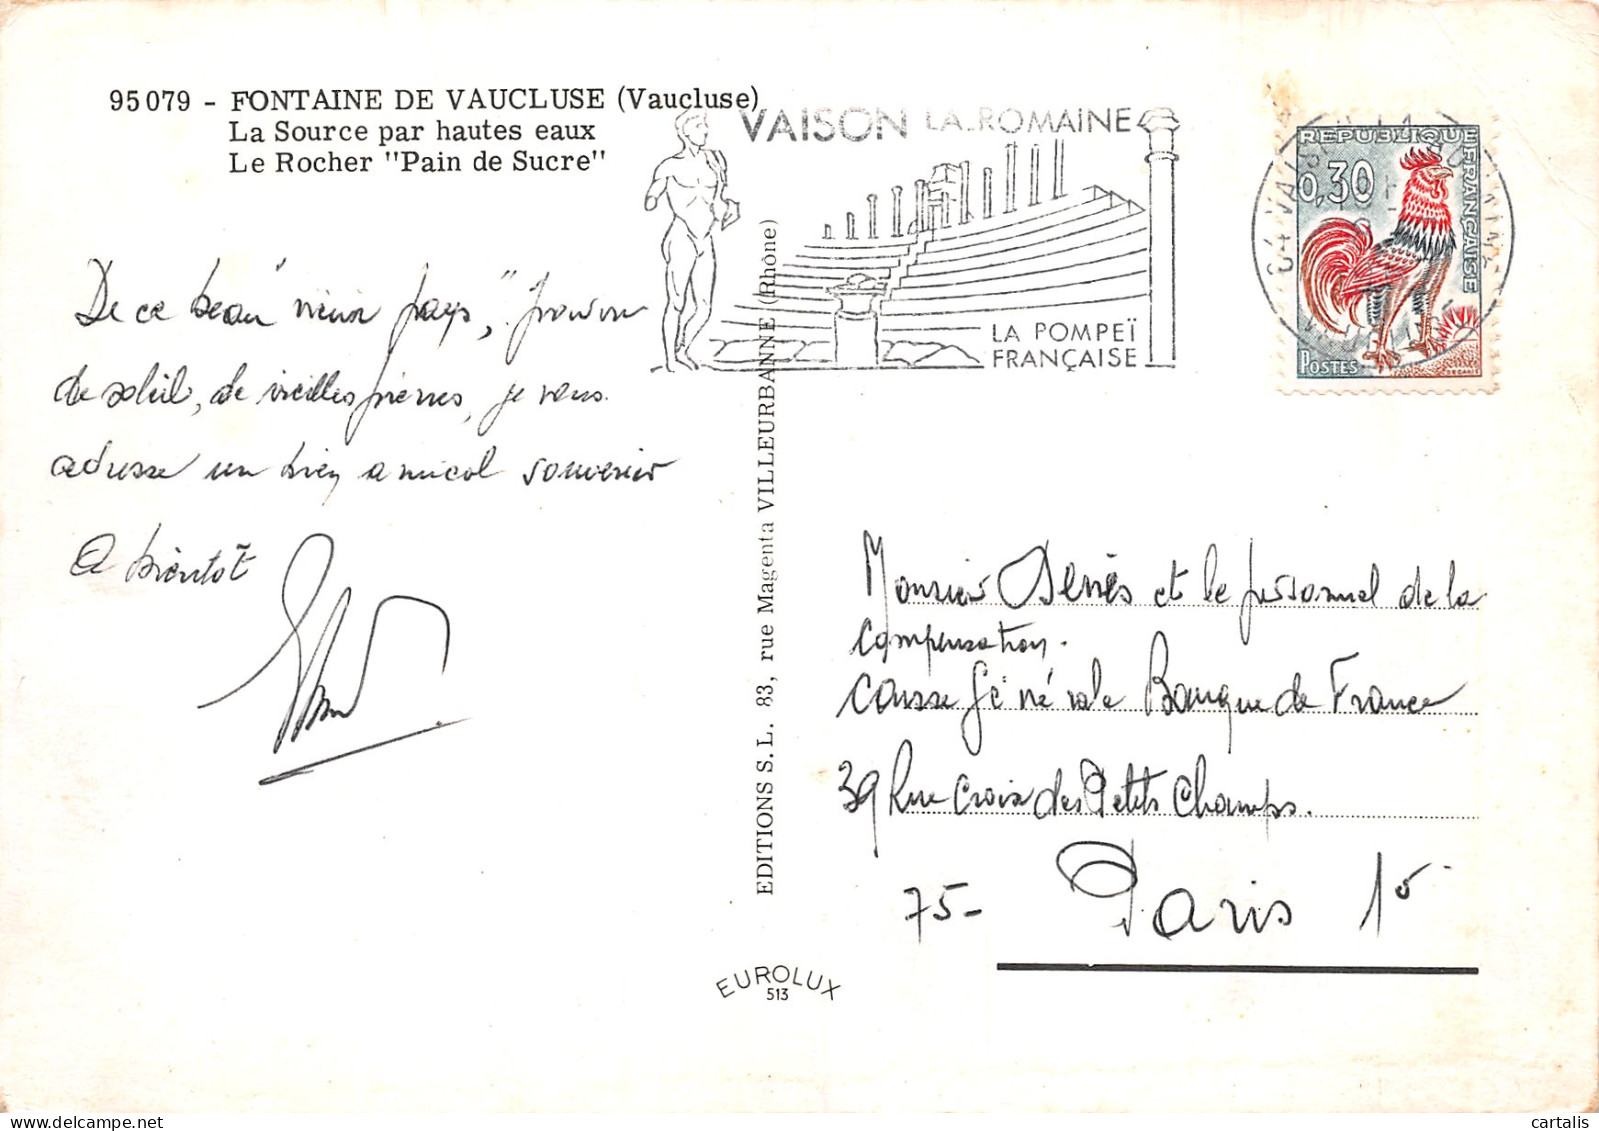 95079 - FONTAINE DE VAUCLUSE (Vaucluse)
La Source par hautes eaux
Le Rocher "Pain de Sucre"
VAISON LA-ROMAINE
LA POMPEÏ
FRANÇAISE
REPUBLIQUE FRANÇAISE
0,30
POSTES
De ce beau "vieux pays,"
de soleil, de vieilles pierres, je vous
adresse un bien amical souvenir
A bientôt
EDITIONS S. L. 83, rue Magenta VILLEURBANNE (Rhône)
Monsieur et le personnel de la
compensation.
Caisse Générale Banque de France
39 Rue Croix des Petits Champs.
75- Paris 1
EUROLUX
513
cartalis